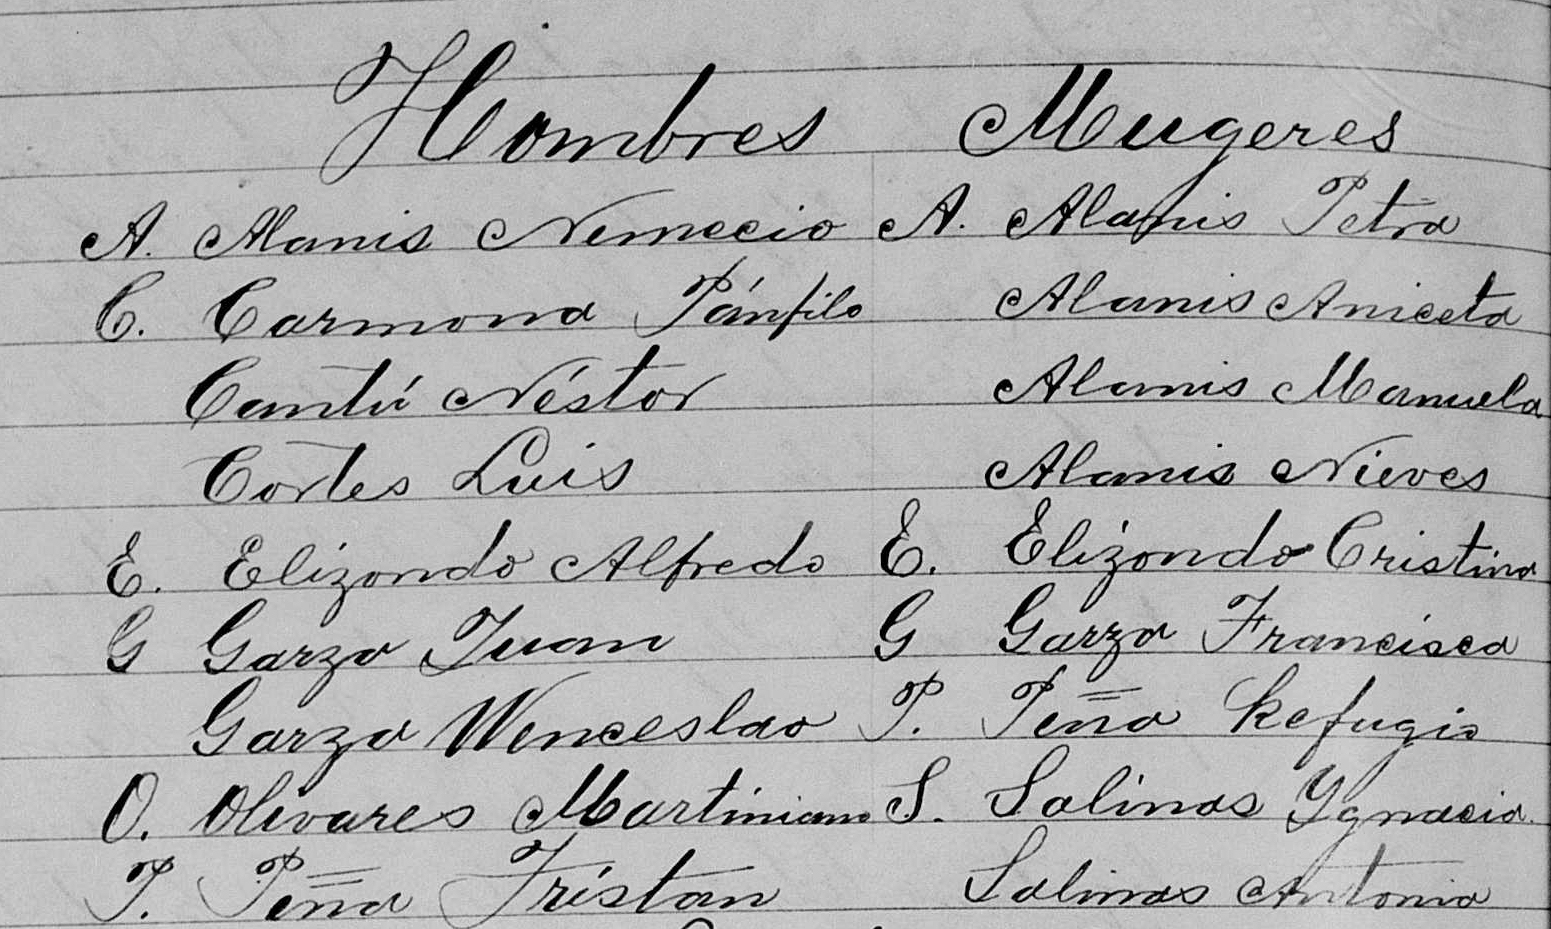 Hombres Mugeres
A. Alanis Nemecio A. Alanis Petra
C. Carmona Pánfilo Alanis Aniceta
Cantú Néstor Alanis Manuela
Cortes Luis Alanis Nieves
E. Elizondo Alfredo E. Elizondo Cristina
G Garza Juan G Garza Francisca
Garza Wenceslao P. Peña Refugio
O. Olivares Martiniano S. Salinas Ygnacia.
P. Peña Tristan Salinas Antonia